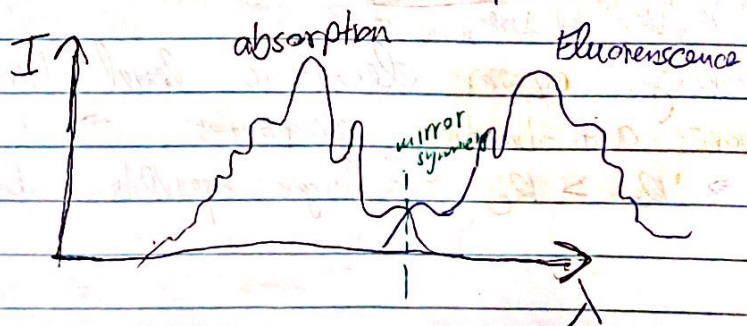 I
absorption
Fluorenscence
mirror
symmetry
λ